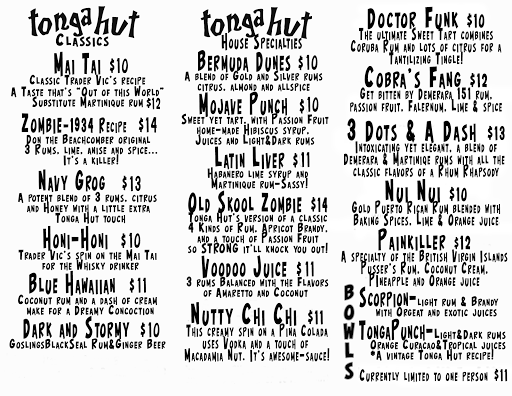 tonga hut
CLASSICS
MAI TAI $10
CLASSIC TRADER VIC'S RECIPE
A TASTE THAT'S "OUT OF THIS WORLD"
SUBSTITUTE MARTINIQUE RUM $12
ZOMBIE-1934 RECIPE $14
DON THE BEACHCOMBER ORIGINAL
3 RUMS. LIME. ANISE AND SPICE...
IT'S A KILLER!
NAVY GROG $13
A POTENT BLEND OF 3 RUMS. CITRUS
AND HONEY WITH A LITTLE EXTRA
TONGA HUT TOUCH
HONI-HONI $10
TRADER VIC'S SPIN ON THE MAI TAI
FOR THE WHISKY DRINKER
BLUE HAWAIIAN $11
COCONUT RUM AND A DASH OF CREAM
MAKE FOR A DREAMY CONCOCTION
DARK AND STORMY $10
GOSLINGSBLACKSEAL RUM&GINGER BEER
tonga hut
HOUSE SPECIALTIES
BERMUDA DUNES $10
A BLEND OF GOLD AND SILVER RUMS
CITRUS. ALMOND AND ALLSPICE
MOJAVE PUNCH $10
SWEET YET TART. WITH PASSION FRUIT
HOME-MADE HIBISCUS SYRUP.
JUICES AND LIGHT&DARK RUMS
LATIN LIVER $11
HABANERO LIME SYRUP AND
MARTINIQUE RUM-SASSY!
OLD SKOOL ZOMBIE $14
TONGA HUT'S VERSION OF A CLASSIC
4 KINDS OF RUM. APRICOT BRANDY.
AND A TOUCH OF PASSION FRUIT
SO STRONG IT'LL KNOCK YOU OUT!
VOODOO JUICE $11
3 RUMS BALANCED WITH THE FLAVORS
OF AMARETTO AND COCONUT
NUTTY CHI CHI $11
THIS CREAMY SPIN ON A PINA COLADA
USES VODKA AND A TOUCH OF
MACADAMIA NUT. IT'S AWESOME-SAUCE!
DOCTOR FUNK $10
THE ULTIMATE SWEET TART COMBINES
CORUBA RUM AND LOTS OF CITRUS FOR A
TANTILIZING TINGLE!
COBRA'S FANG $12
GET BITTEN BY DEMERARA 151 RUM.
PASSION FRUIT. FALERNUM. LIME & SPICE
3 DOTS & A DASH $13
INTOXICATING YET ELEGANT. A BLEND OF
DEMERARA & MARTINIQUE RUMS WITH ALL THE
CLASSIC FLAVORS OF A RHUM RHAPSODY
NUI NUI $10
GOLD PUERTO RICAN RUM BLENDED WITH
BAKING SPICES. LIME & ORANGE JUICE
PAINKILLER $12
A SPECIALTY OF THE BRITISH VIRGIN ISLANDS
PUSSER'S RUM. COCONUT CREAM.
PINEAPPLE AND ORANGE JUICE
BOWLS
SCORPION-LIGHT RUM & BRANDY
WITH ORGEAT AND EXOTIC JUICES
TONGAPUNCH-LIGHT&DARK RUMS
ORANGE CURACAO&TROPICAL JUICES
*A VINTAGE TONGA HUT RECIPE!
CURRENTLY LIMITED TO ONE PERSON $11